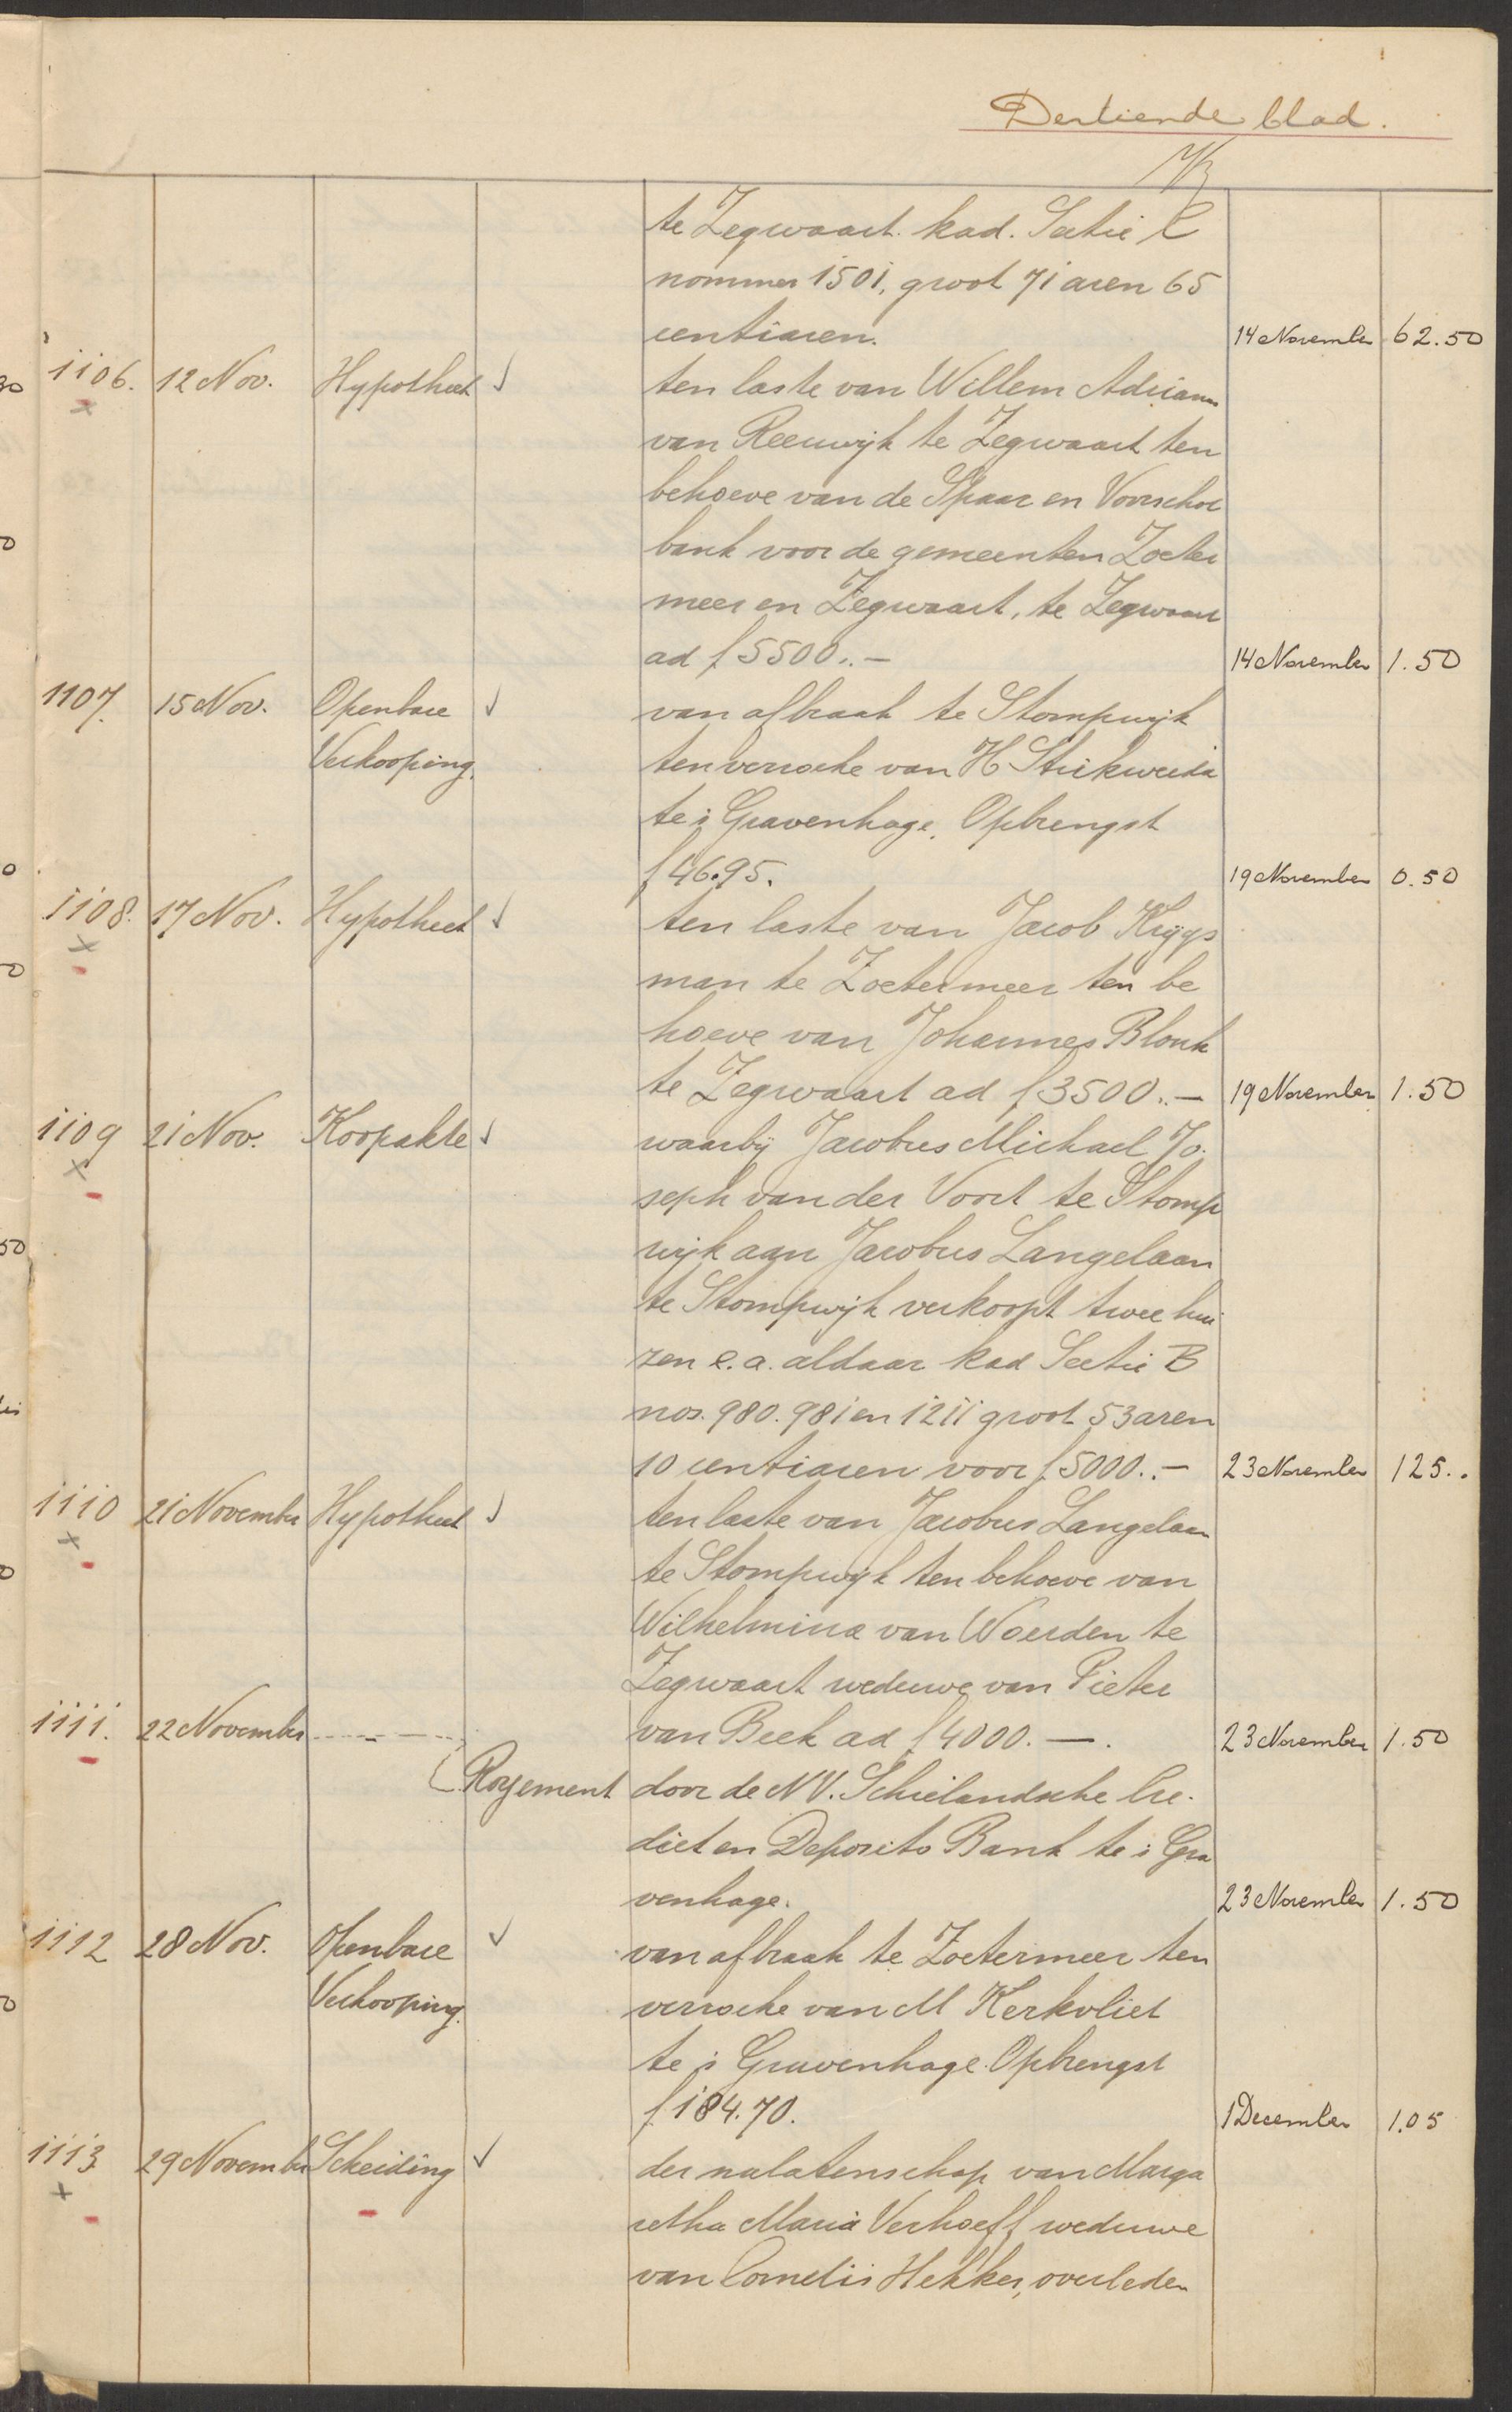 Dertiende blad.
te Zegwaart. kad. Sectie C
nommer 1501, groot 71 aren 65
centiaren. 14 November 62.50
1106. 12 Nov. Hypotheek ten laste van Willem Adrianus
van Reeuwijk te Zegwaart ten
behoeve van de Spaar en Voorschot
bank voor de gemeenten Zoeter
meer en Zegwaart, te Zegwaart
ad f 5500.- 14 November 1.50
1107. 15 Nov. Openbare van afbraak te Stompwijk
Verkooping. ten verzoeke van H
te s Gravenhage. Opbrengst
f 46.95. 19 November 0.50
1108. 17 Nov. Hypotheek ten laste van Jacob Krijgs
man te Zoetermeer ten be
hoeve van Johannes Blonk
te Zegwaart ad f 3500.- 19 November 1.50
1109 21 Nov. Koopakte waarbij Jacobus Michael Jo
seph van der Voort te Stomp
wijk aan Jacobus Langelaan
te Stompwijk verkoopt twee hui
zen e.a. aldaar kad Sectie B
nos. 980. 981 en 1211 groot 53 aren
10 centiaren voor f 5000.- 23 November 125..
1110 21 November Hypotheek ten laste van Jacobus Langelaan
te Stompwijk ten behoeve van
Wilhelmina van Woerden te
Zegwaart weduwe van Pieter
1111. 22 November van Beek ad f 4000.-. 23 November 1.50
Royement door de N V. Schielandsche Cre-
diet en Deposito Bank te s Gra
venhage. 23 November 1.50
1112 28 Nov. Openbare van afbraak te Zoetermeer ten
Verkooping. verzoeke van M Kerkvliet
te s Gravenhage. Opbrengst
f 184.70. 1 December 1.05
1113 29 November Scheiding der nalatenschap van Marga
retha Maria Verhoeff weduwe
van Cornelis Hekker, overleden